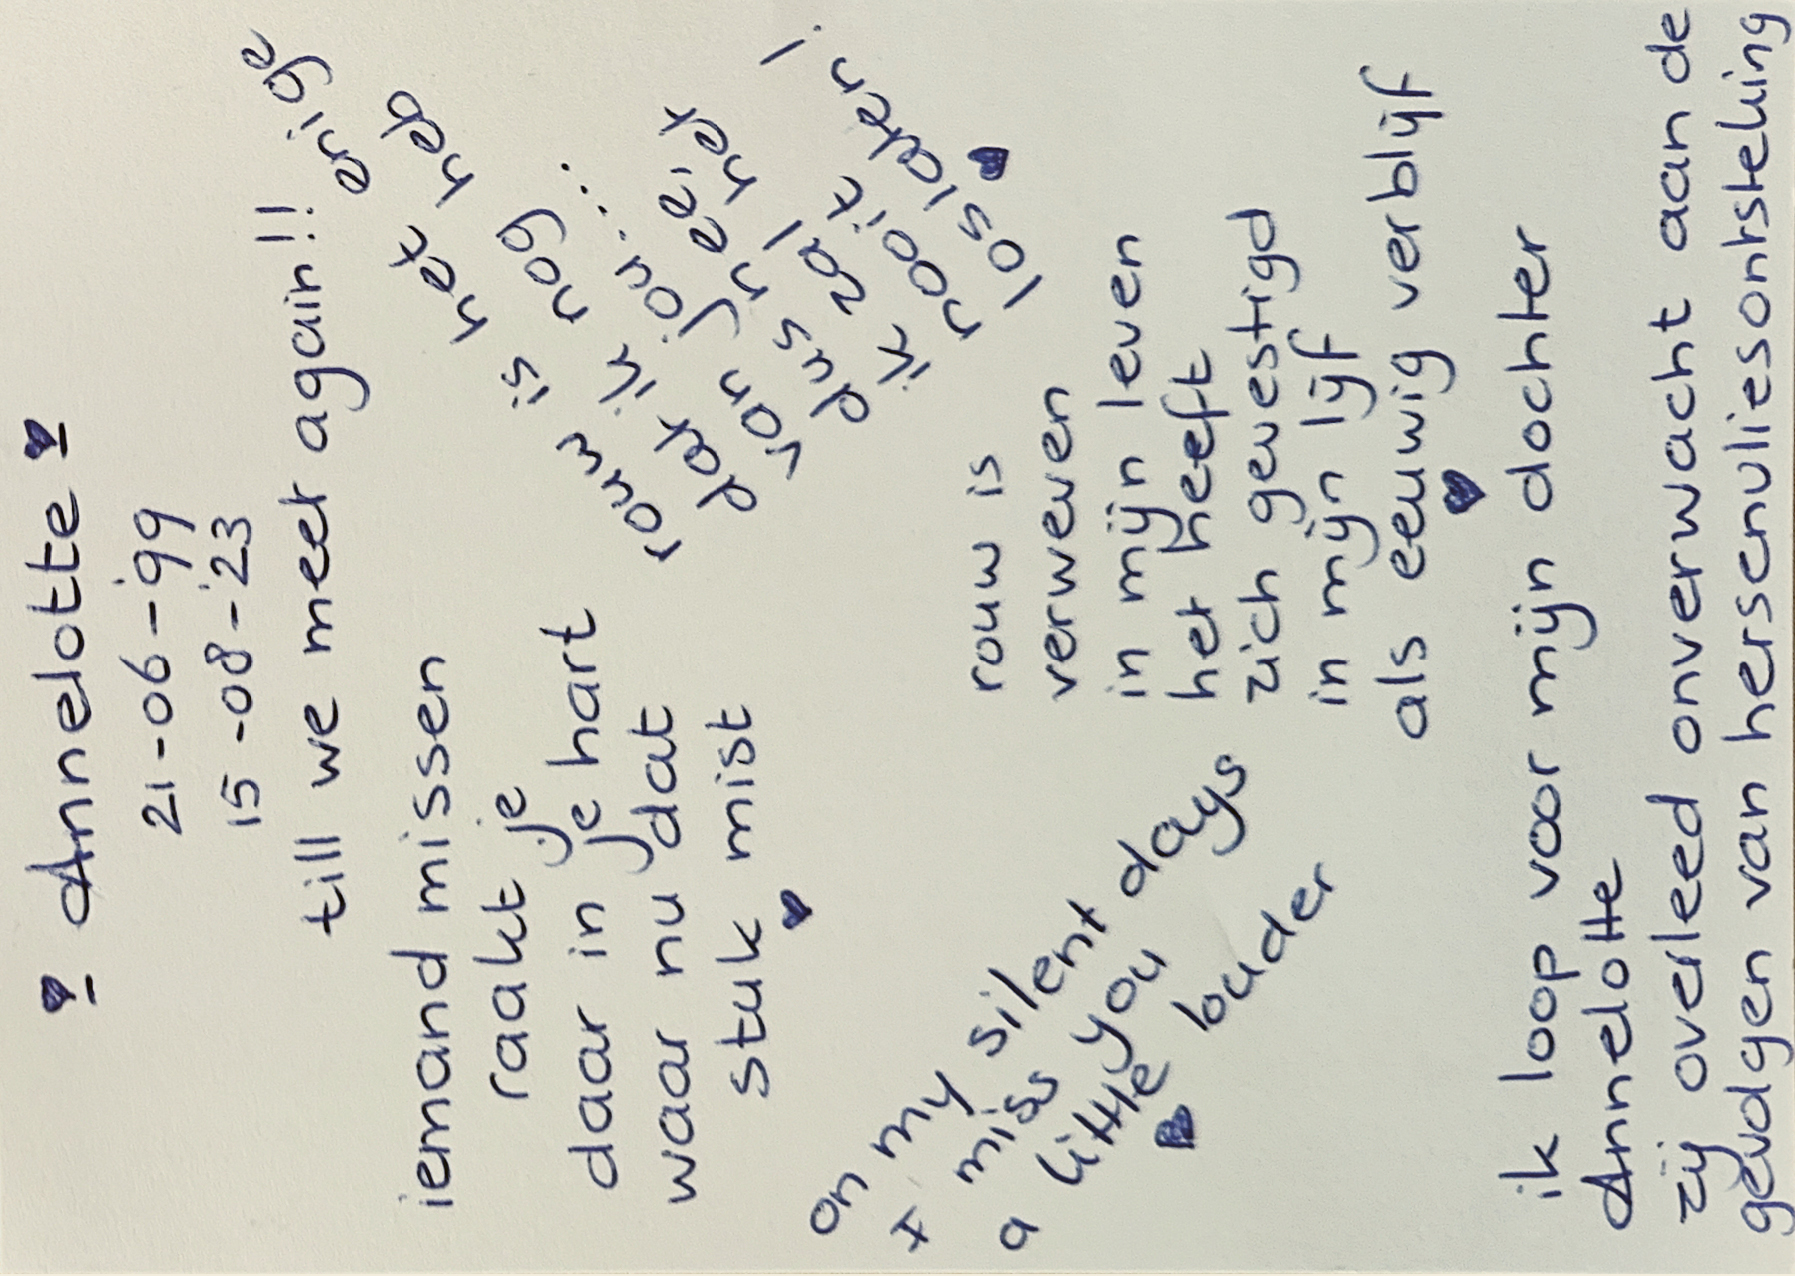 ♥ Annelotte ♥
21-06-'99
15-08-'23
till we meet again!!
iemand missen
raakt je
daar in je hart
waar nu dat
stuk mist
♥
rouw is het enige
dat ik nog het heb
van jou....
dus nee, het
ik zal
nooit
loslaten!
♥
on my silent days
I miss you
a little louder
♥
rouw is
verweven
in mijn leven
het heeft
zich gevestigd
in mijn lijf
als eeuwig verblijf
♥
ik loop voor mijn dochter
Annelotte
zij overleed onverwacht aan de
gevolgen van hersenvliesontsteking